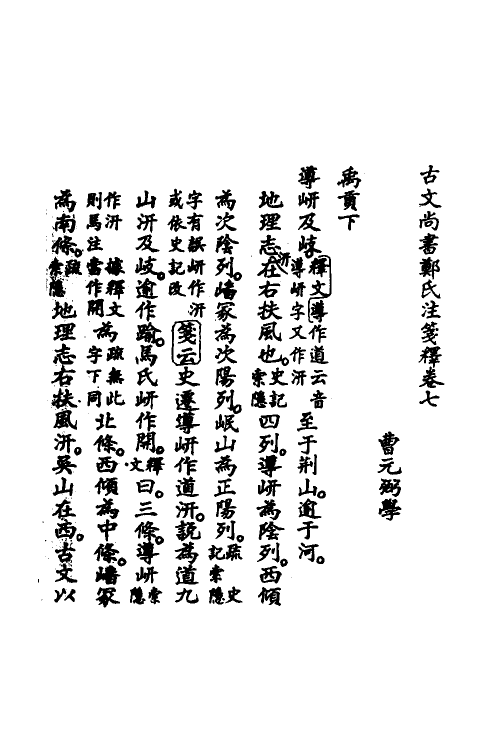 古文尚書鄭氏注箋釋卷七
曹元弼學
禹貢下
導岍及岐。釋文導作道云音導岍字又作汧至于荆山。逾于河。
地理志汧在右扶風也。史記索隱四列。導岍為陰列。西傾
為次陰列。嶓冢為次陽列。岷山為正陽列。疏史記索隱
字有誤岍作汧或依史記改箋云史遷導岍作道汧。説為道九
山汧及岐。逾作踰。馬氏岍作開。釋文曰。三條。導岍索隱
作汧據釋文則馬注當作開為疏無此字下同北條。西傾為中條。嶓冢
為南條。疏索隱地理志右扶風汧。吳山在西。古文以